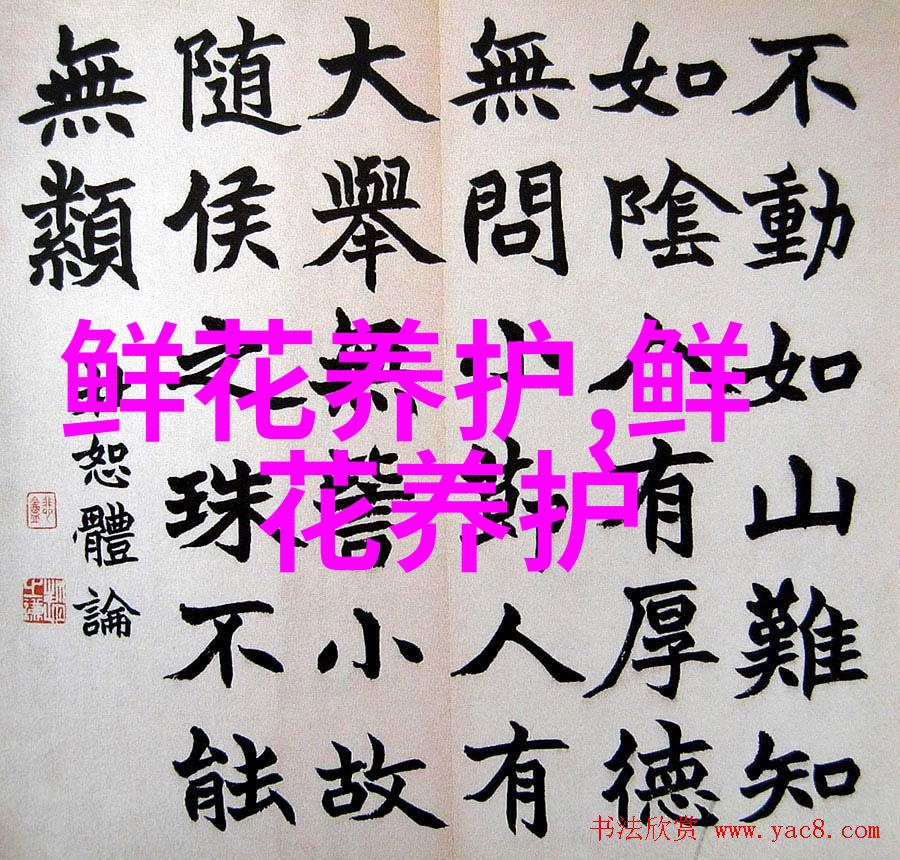 不動如山難知
如陰人有厚德
無問小節人有
大舉無訾小故
隨侯之珠不能
無纇
恕體論
鲜花养护,鲜
花养护
书法欣赏 www.yac8.com